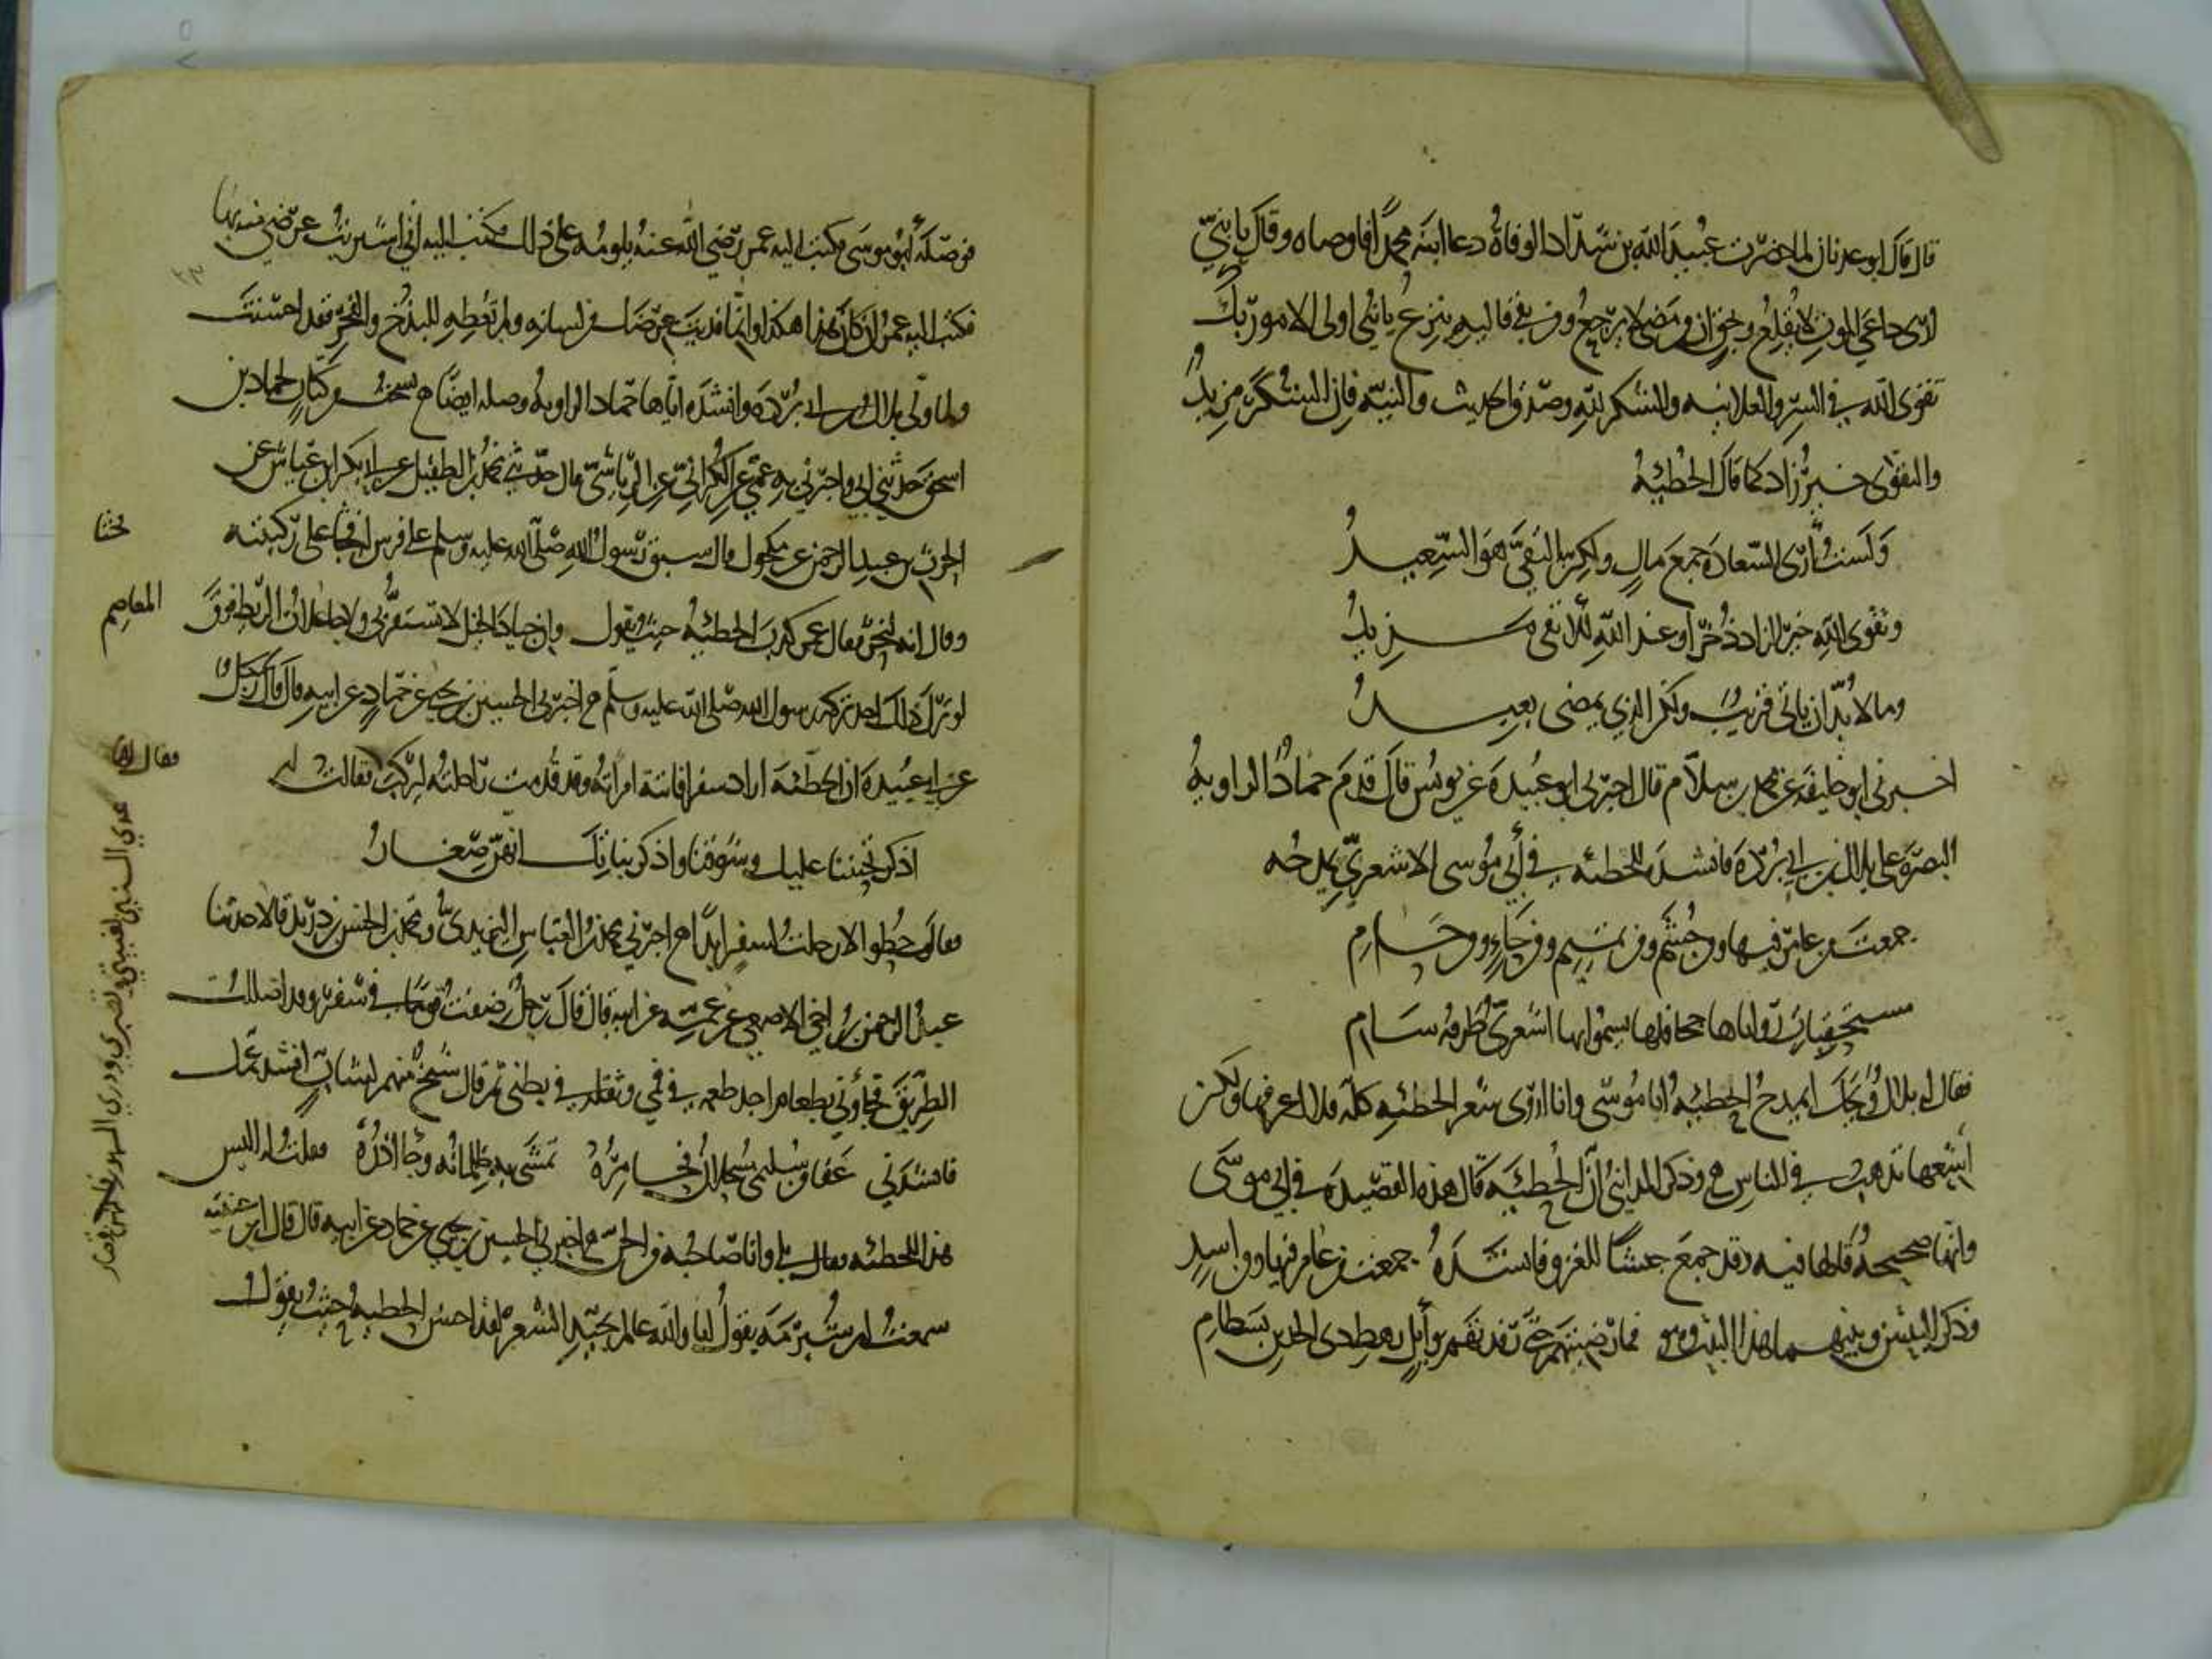 قال قال ابو عدنان لما حضرت عبيد الله بن شداد الوفاة دعا ابنه محمدا فاوصاه وقال يا بني
ارى داعي الموت لا يقلع وبحق ان من مضى لا يرجع ومن بقي فاليه ينزع يا بني اولى الامور بك
تقوى الله في السر والعلانيه والشكر لله وصدق الحديث والنيه فان للشكر مزيد
والتقوى خير زاد كما قال الحطيئه
ولست أرى السعاده جمع مال ولكن التقي هو السعيد
وتقوى الله خير الزاد ذخرا وعند الله للاتقى مزيد
وما لا بد ان ياتي قريب ولكن الذي يمضي بعيد
اخبرني ابو خليفه عن محمد بن سلام قال اخبرني ابو عبيدة عن يونس قال قدم حماد الراويه
البصره على بلال بن ابي برده فانشده للحطئه في أبي موسى الاشعري يمدحه
جمعت من عامر فيها ومن جشم ومن تميم ومن حاء ومن حام
مستحقبات رواياها جحافلها يسموا بها اشعري طرفه سام
فقال له بلال ويحك ايمدح الحطيئه ابا موسى وانا اروي شعر الحطئيه كله فلا اعرفها ولكن
أشعها تذهب في الناس وذكر المدايني أن الحطيئه قال هذه القصيده في ابي موسى
وانها صحيحه قالها فيه وقد جمع جيشا للغزو فانشده جمعت من عامر فيها ومن اسد
وذكر البيتين وبينهما هذا البيت وهو فما رضيتهم حتى رفدتهم بوايل رهط ذي الجدين بسطام
فوصله أبو موسى فكتب اليه عمر رضي الله عنه يلومه على ذلك فكتب اليه اني اشتريت عرضي منه بها
فكتب اليه عمر ان كان هذا هكذا وانما فديت عرضك من لسانه ولم تعطه للبذخ والفخر فقد احسنت
ولما ولي بلال بن ابي برده وانشده اياها حماد الراويه وصله ايضا نسخت من كتاب لحماد بن
اسحق حدثني ابي واخبرني به عمي عن الكراني عن الرياشي قال حدثني محمد بن الطفيل عن ابي بكر ابن عياش عن
الحرث بن عبد الرحمن عن مكحول قال سبق رسول الله صلى الله عليه وسلم على فرس له فجثا على ركبتيه
وقال انه لبحر فقال عمر كذب الحطيئه حيث يقول وان جياد الخيل لا تستفزني ولا جاعلات الريط فوق
المعاصم
لو ترك ذلك احد تركه رسول الله صلى الله عليه وسلم اخبرني الحسين بن يحيى عن حماد عن ابيه قال قال
عن ابي عبيدة ان الحطيئة اراد سفرا فاتته امراته وقد قدمت راحلته ليركب فقالت له
اذكر تحننا عليك وشوقنا واذكر بناتك انهن صغار
فقال حطوا لا رحلت لسفر ابدا اخبرني محمد بن العباس اليزيدي ومحمد بن الحسن بن دريد قالا حدثنا
عبد الرحمن بن اخي الاصمعي عن عمه عن ابيه قال قال رجل ضفت قوما في سفر وقد اضللت
الطريق فجاؤني بطعام اجد طعمه في فمي وثقله في بطني ثم قال شيخ منهم لشاب انشد عمك
فانشدني عفا من سليمى مسحلان فحامره تمشى به ظلمانه وجآذره فقلت له اليس
هذا للحطئه فقال بلى وانا صاحبه من الجن اخبرني الحسين بن يحيى عن حماد عن ابيه قال قال ابن عيينه
سمعت ابن شبرمه يقول انا والله عالم بجيد الشعر لقد احسن الحطيئه حيث يقول